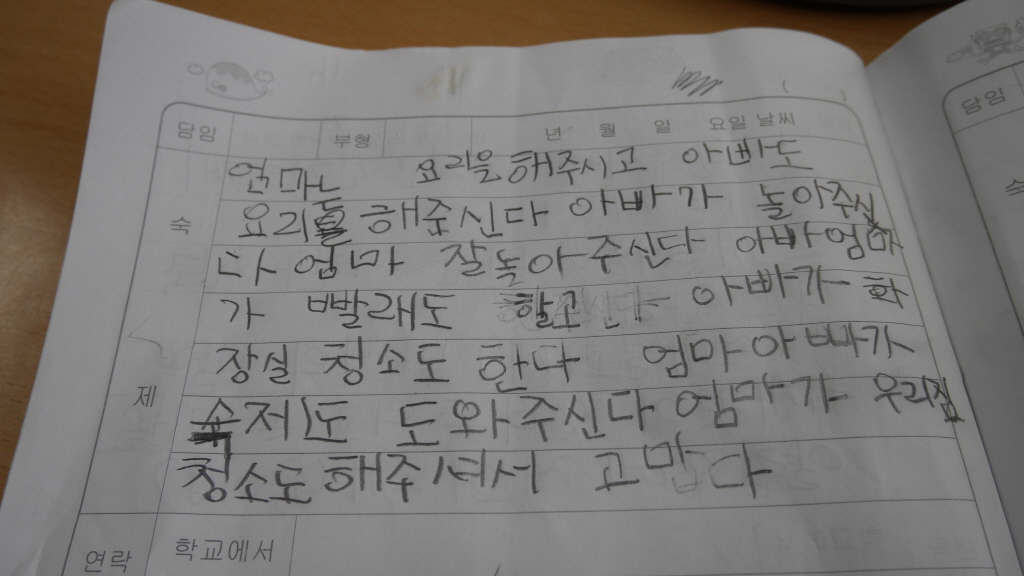 담임 부형 년 월 일 요일 날씨 ( )
엄마는 요리을 해주시고 아빠도
요리를 해주신다 아빠가 놀아주실
다 엄마 잘 놀아주신다 아빠 엄마
가 빨래도 아빠가 화
장설 청소도 한다 엄마 아빠가
숙제도 도와주신다 엄마가 우리집
청소도 해주셔서 고맙다
숙
제
연락 학교에서
담임
숙